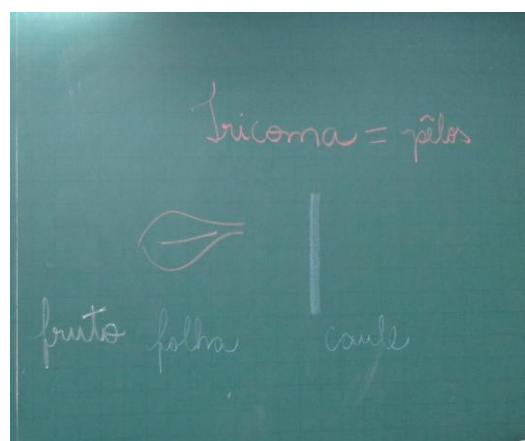 Tricoma = pêlos
fruto folha caule